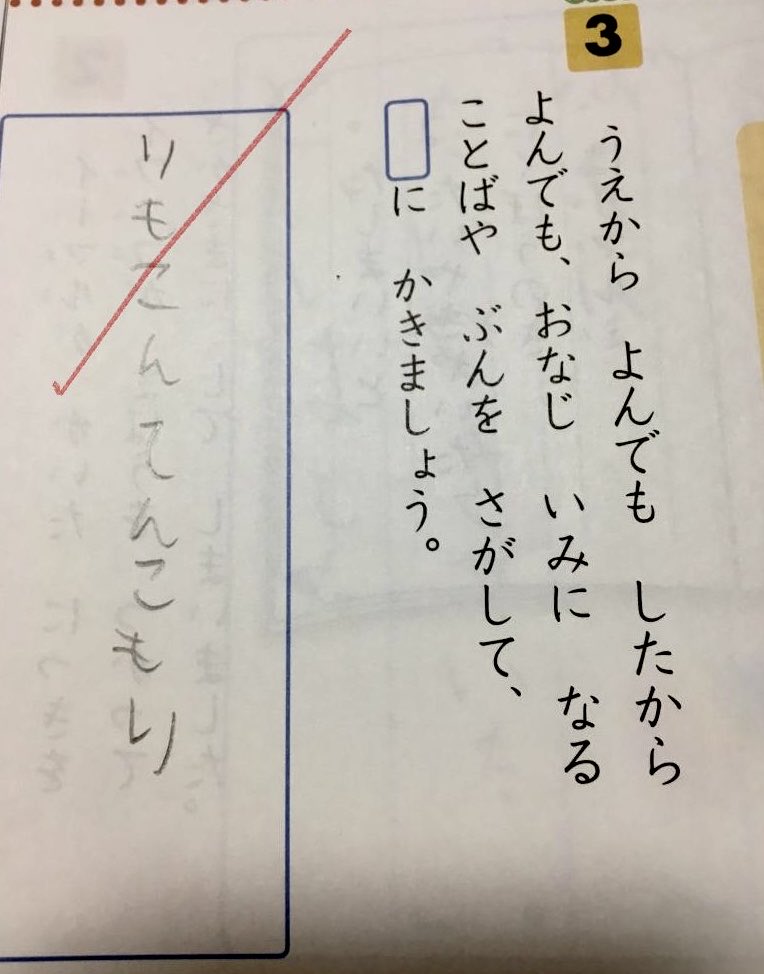 3
うえから よんでも したから
よんでも、おなじ いみに なる
ことばや ぶんを さがして、
に かきましょう。
りもこんてんこもり